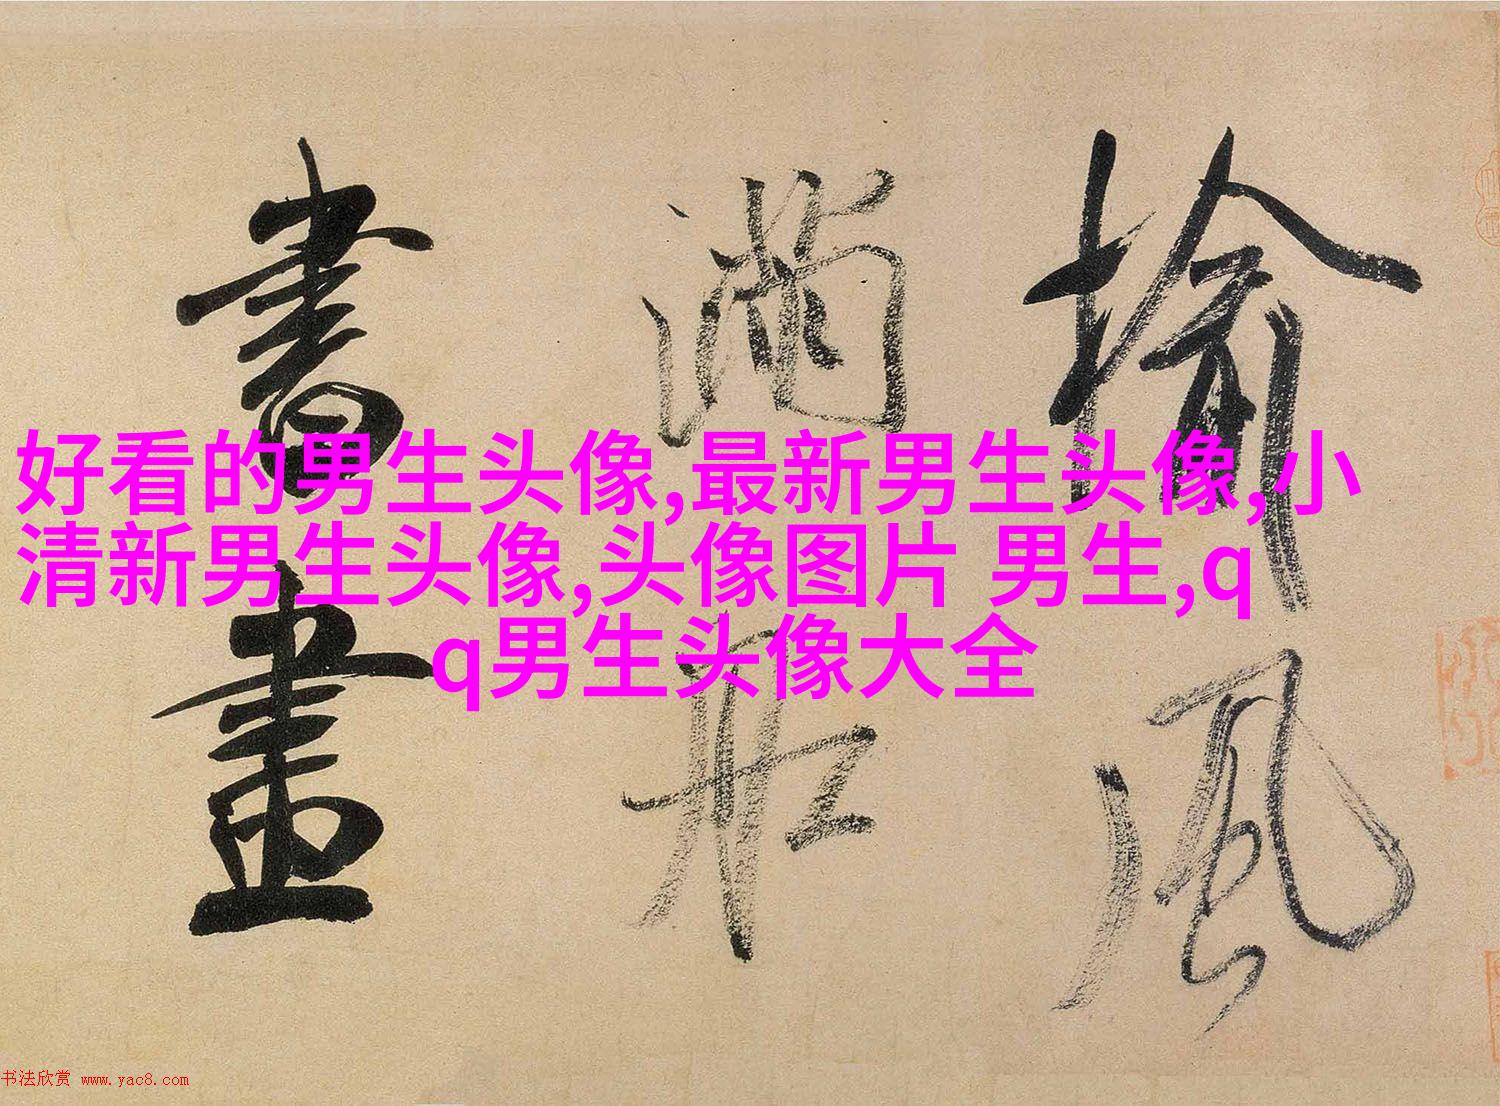 揄風
滿
書畫
好看的男生头像,最新男生头像,小
清新男生头像,头像图片 男生,q
q男生头像大全
书法欣赏 www.yac8.com